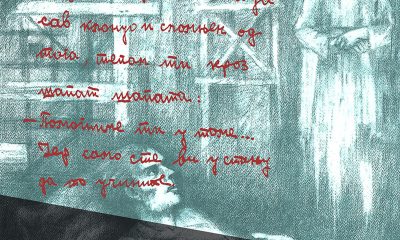 да
сав клонуо и сломљен од
тога, рекао ми кроз
шапат шапата:
– Помогните ми у томе...
Јер само сте ви у стању
да то учините